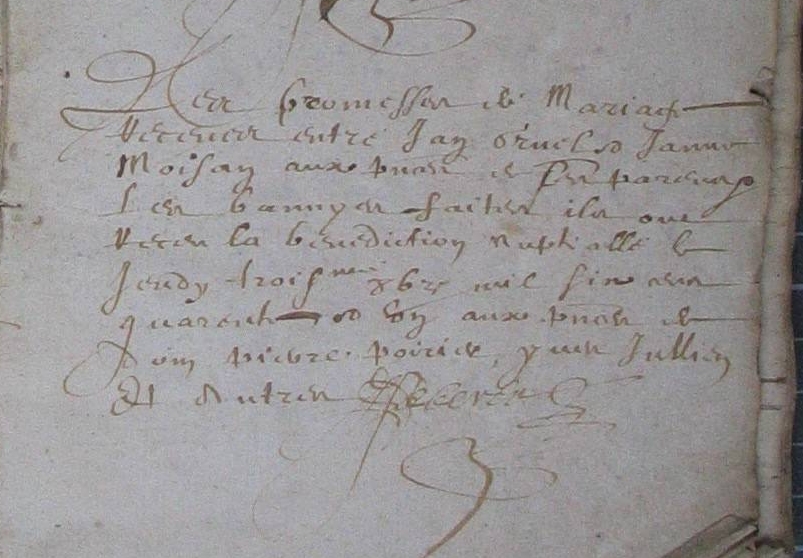 Les promesses de Mariage
Receues entre Jan Gruel & Janne
Moisan aux pnces de Les parens
Les bannyes faites ils ont
Receu la benediction nuptialle le
Jeudy troisme xbre mil six cens
quarente & un aux pnces de
dom pierre poirier, yves Jullien
Et Autres